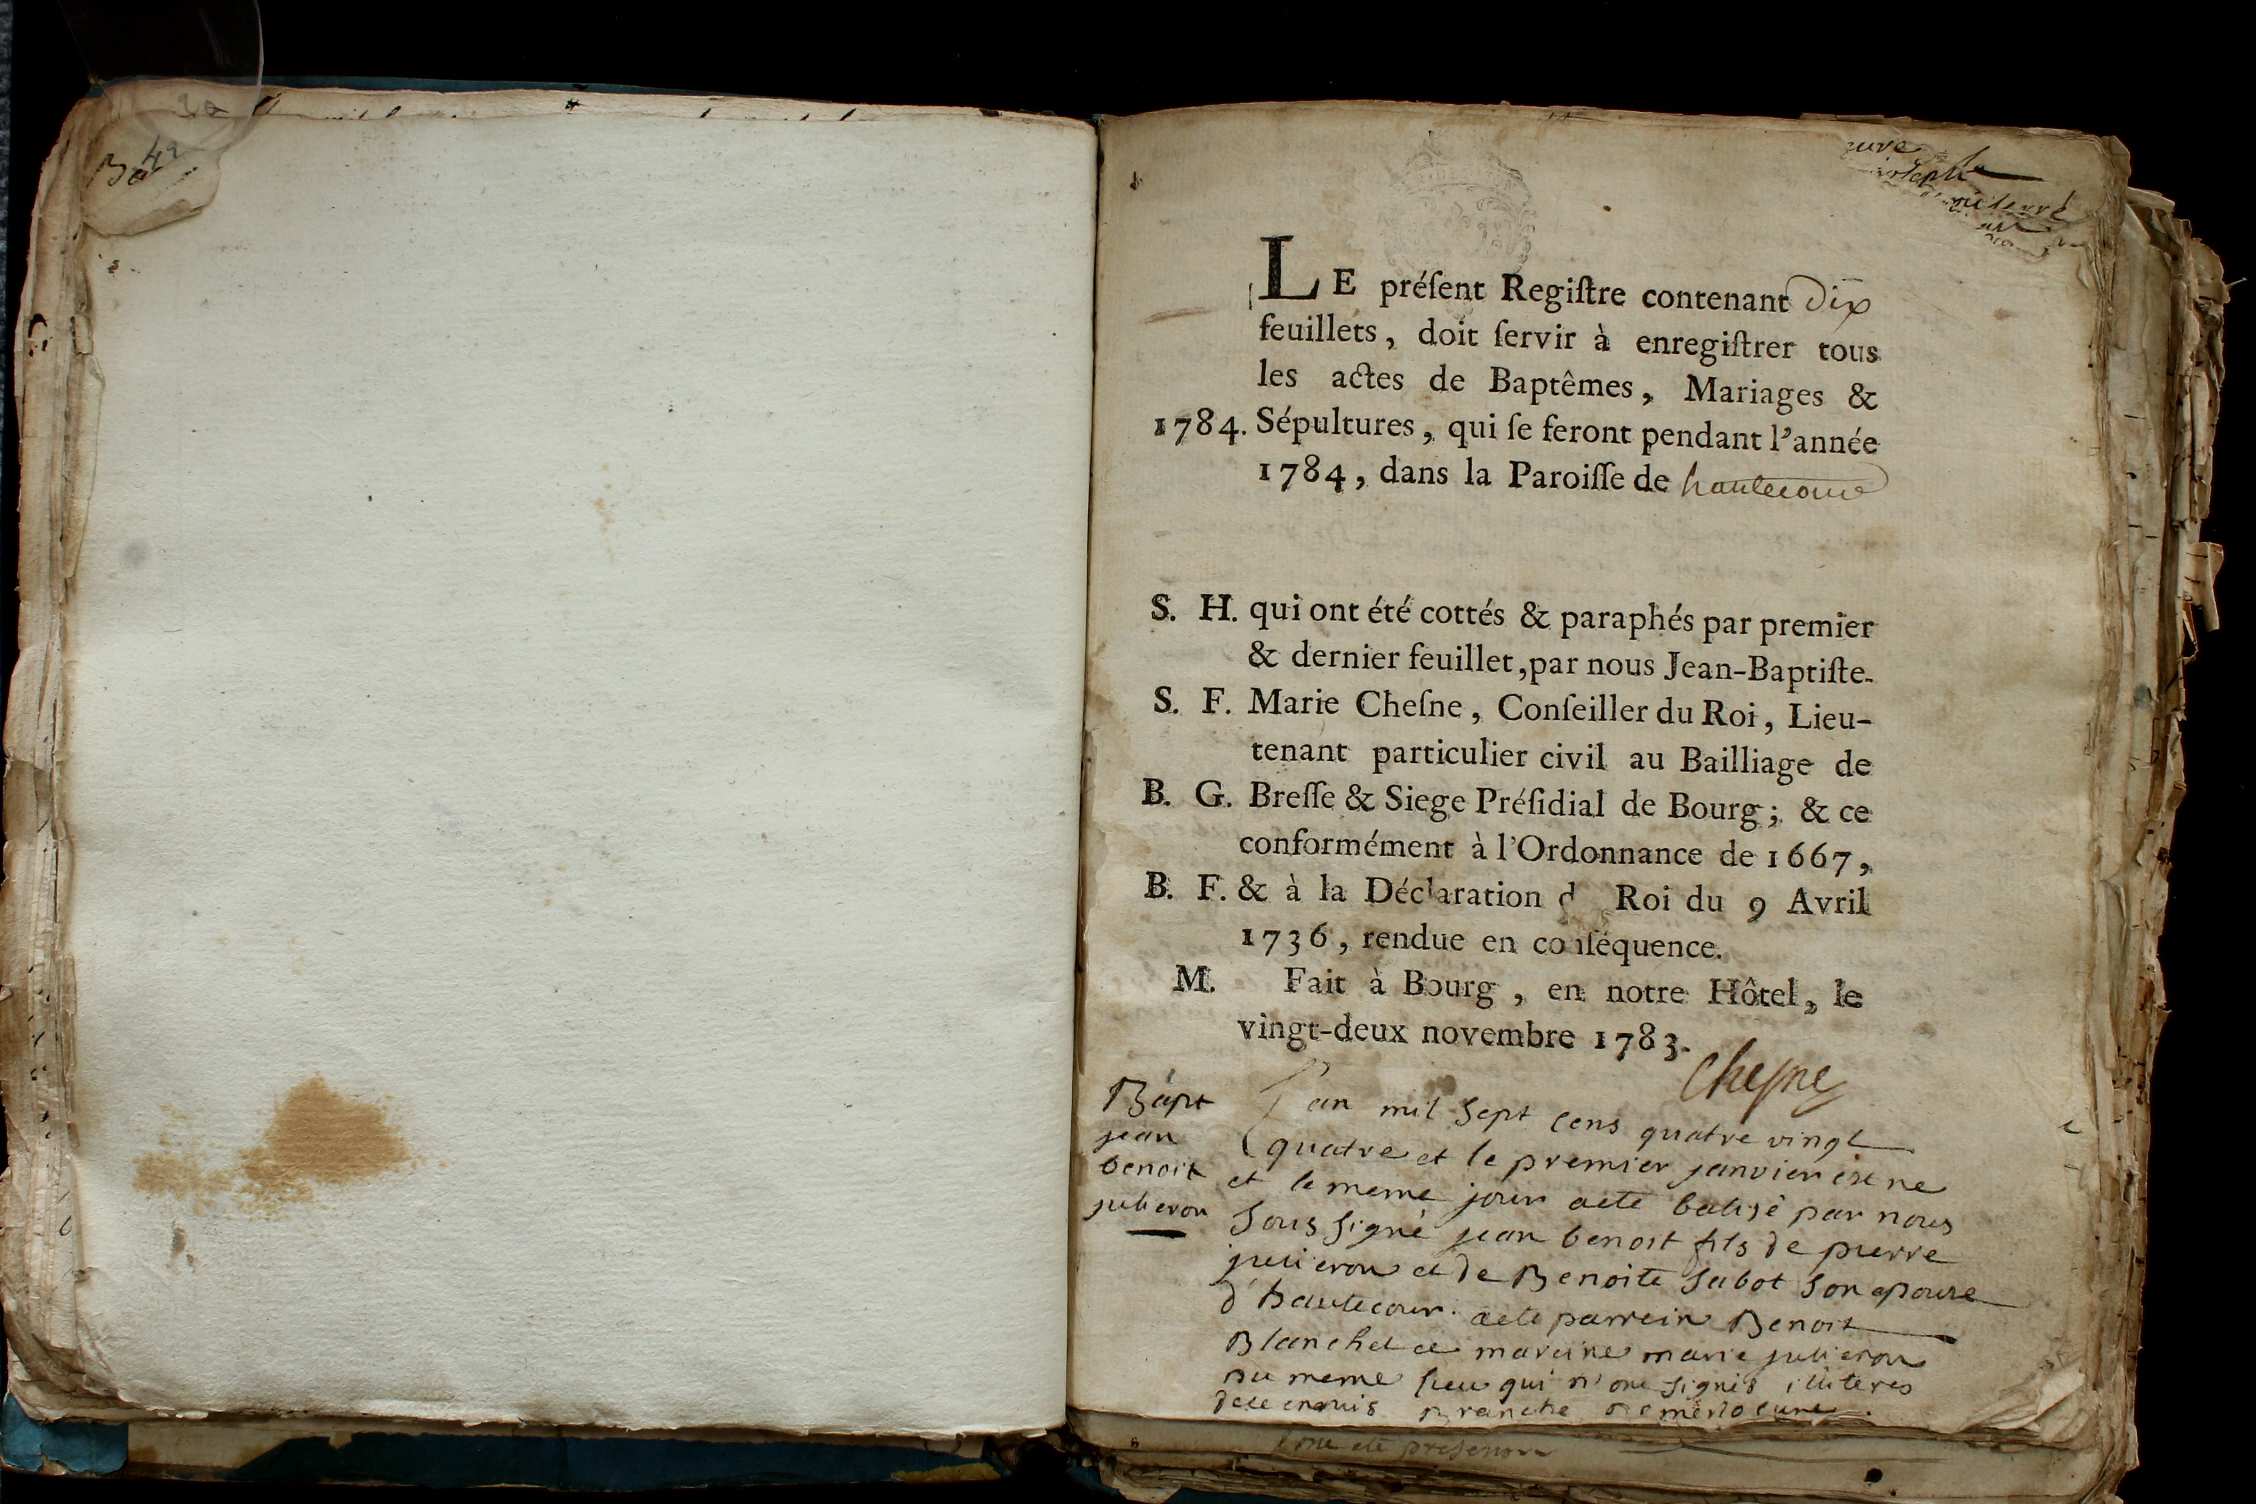 42
LE préſent Regiſtre contenant dix
feuillets, doit ſervir à enregiſtrer tous
les actes de Baptêmes, Mariages &
1784. Sépultures, qui ſe feront pendant l'année
1784, dans la Paroiſſe de hautecour
S. H. qui ont été cottés & paraphés par premier
& dernier feuillet, par nous Jean-Baptiſte-
S. F. Marie Cheſne, Conſeiller du Roi, Lieu-
tenant particulier civil au Bailliage de
B. G. Breſſe & Siege Préſidial de Bourg; & ce
conformément à l'Ordonnance de 1667,
B. F. & à la Déclaration d Roi du 9 Avril
1736, rendue en conſéquence.
M. Fait à Bourg, en notre Hôtel, le
vingt-deux novembre 1783.
Chesne
Bapt
jean
benoit
julieron
L'an mil sept cens quatre vingt
quatre et le premier janvier est ne
et le meme jour aeté batisé par nous
sous signé jean benoit fils de pierre
julieron et de Benoite Sabot son epouse
d'hautecour. aeté parrein Benoit
Blanchet et mareine marie julieron
du meme lieu qui n'ont signés illiteres
de ce enquis